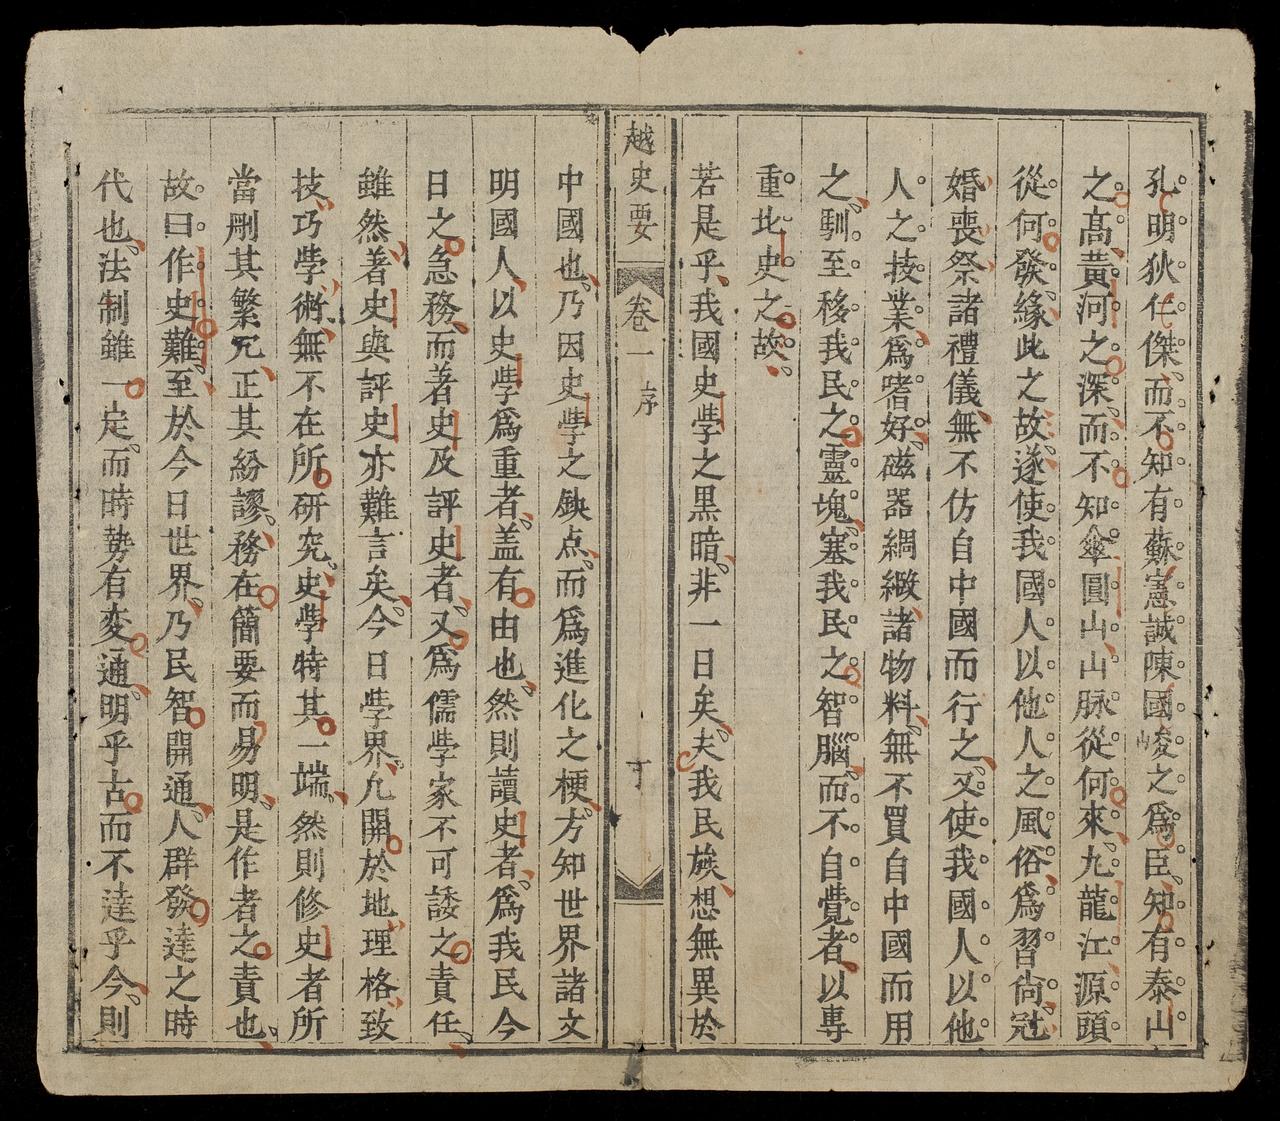 孔明狄仁傑而不知有蘇憲誠陳國峻之爲臣知有泰山
之高黃河之深而不知傘圓山山脉從何來九龍江源頭
從何發緣此之故遂使我國人以他人之風俗爲習尙冠
婚喪祭諸禮儀無不仿自中國而行之又使我國人以他
人之技業爲嗜好磁器綢緞諸物料無不買自中國而用
之馴至移我民之靈塊塞我民之智腦而不自覺者以專
重北史之故
若是乎我國史學之黑暗非一日矣夫我民族想無異於
越史要 卷一 序
中國也乃因史學之缺点而爲進化之梗方知世界諸文
明國人以史學爲重者盖有由也然則讀史者爲我民今
日之急務而著史及評史者又爲儒學家不可諉之責任
雖然著史與評史亦難言矣今日學界九開於地理格致
技巧學術無不在所研究史學特其一端然則修史者所
當刪其繁冗正其紛謬務在簡要而易明是作者之責也
故曰作史難至於今日世界乃民智開通人群發達之時
代也法制雖一定而時勢有変通明乎古而不達乎今則